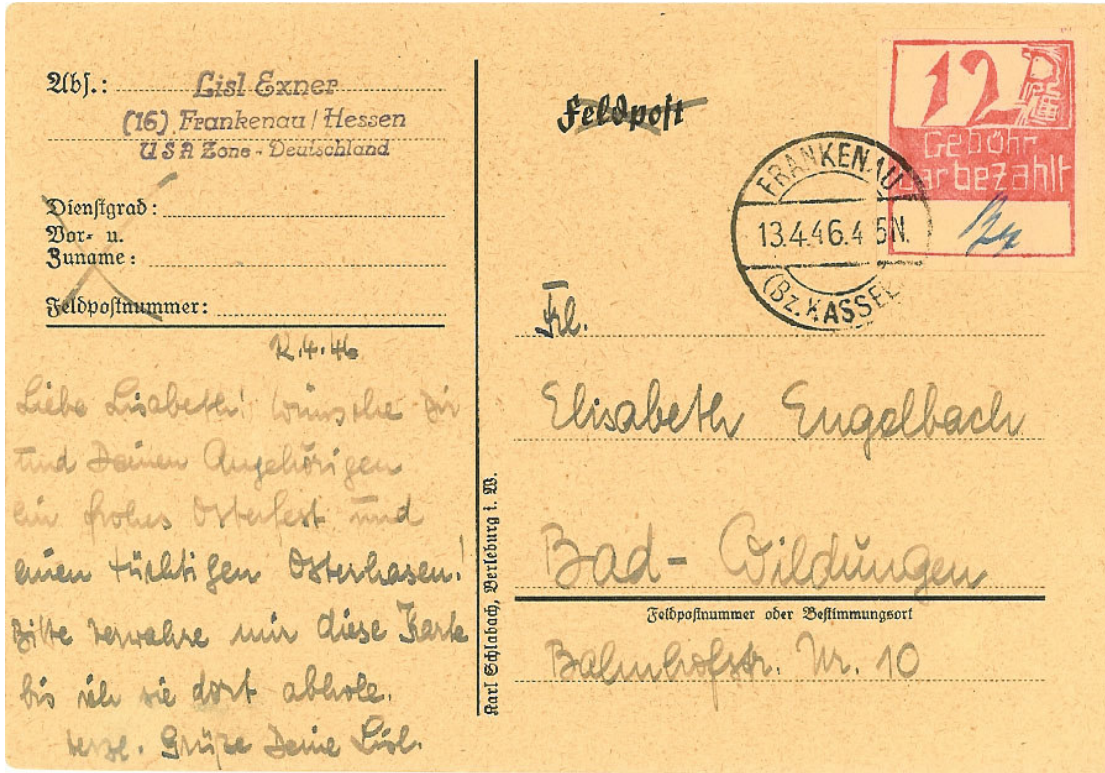 Abs.: Lisl Exner
(16) Frankenau / Hessen
USA Zone - Deutschland
Dienstgrad:
Vor- u.
Zuname:
Feldpostnummer:
12.4.46
Liebe Lisabeth! Wünsche Dir
und Deinen Angehörigen
ein frohes Osterfest und
einen tüchtigen Osterhasen!
Bitte verwahre mir diese Karte
bis ich sie dort abhole.
herzl. Grüße Deine Lisl.
Karl Schlabach, Berleburg i. W.
Feldpost
12
Gebühr
bar bezahlt
FRANKENAU
13.4.46.4-5N.
(Bz. KASSEL)
Frl.
Elisabeth Engelbach
Bad-Wildungen
Feldpostnummer oder Bestimmungsort
Bahnhofstr. Nr. 10